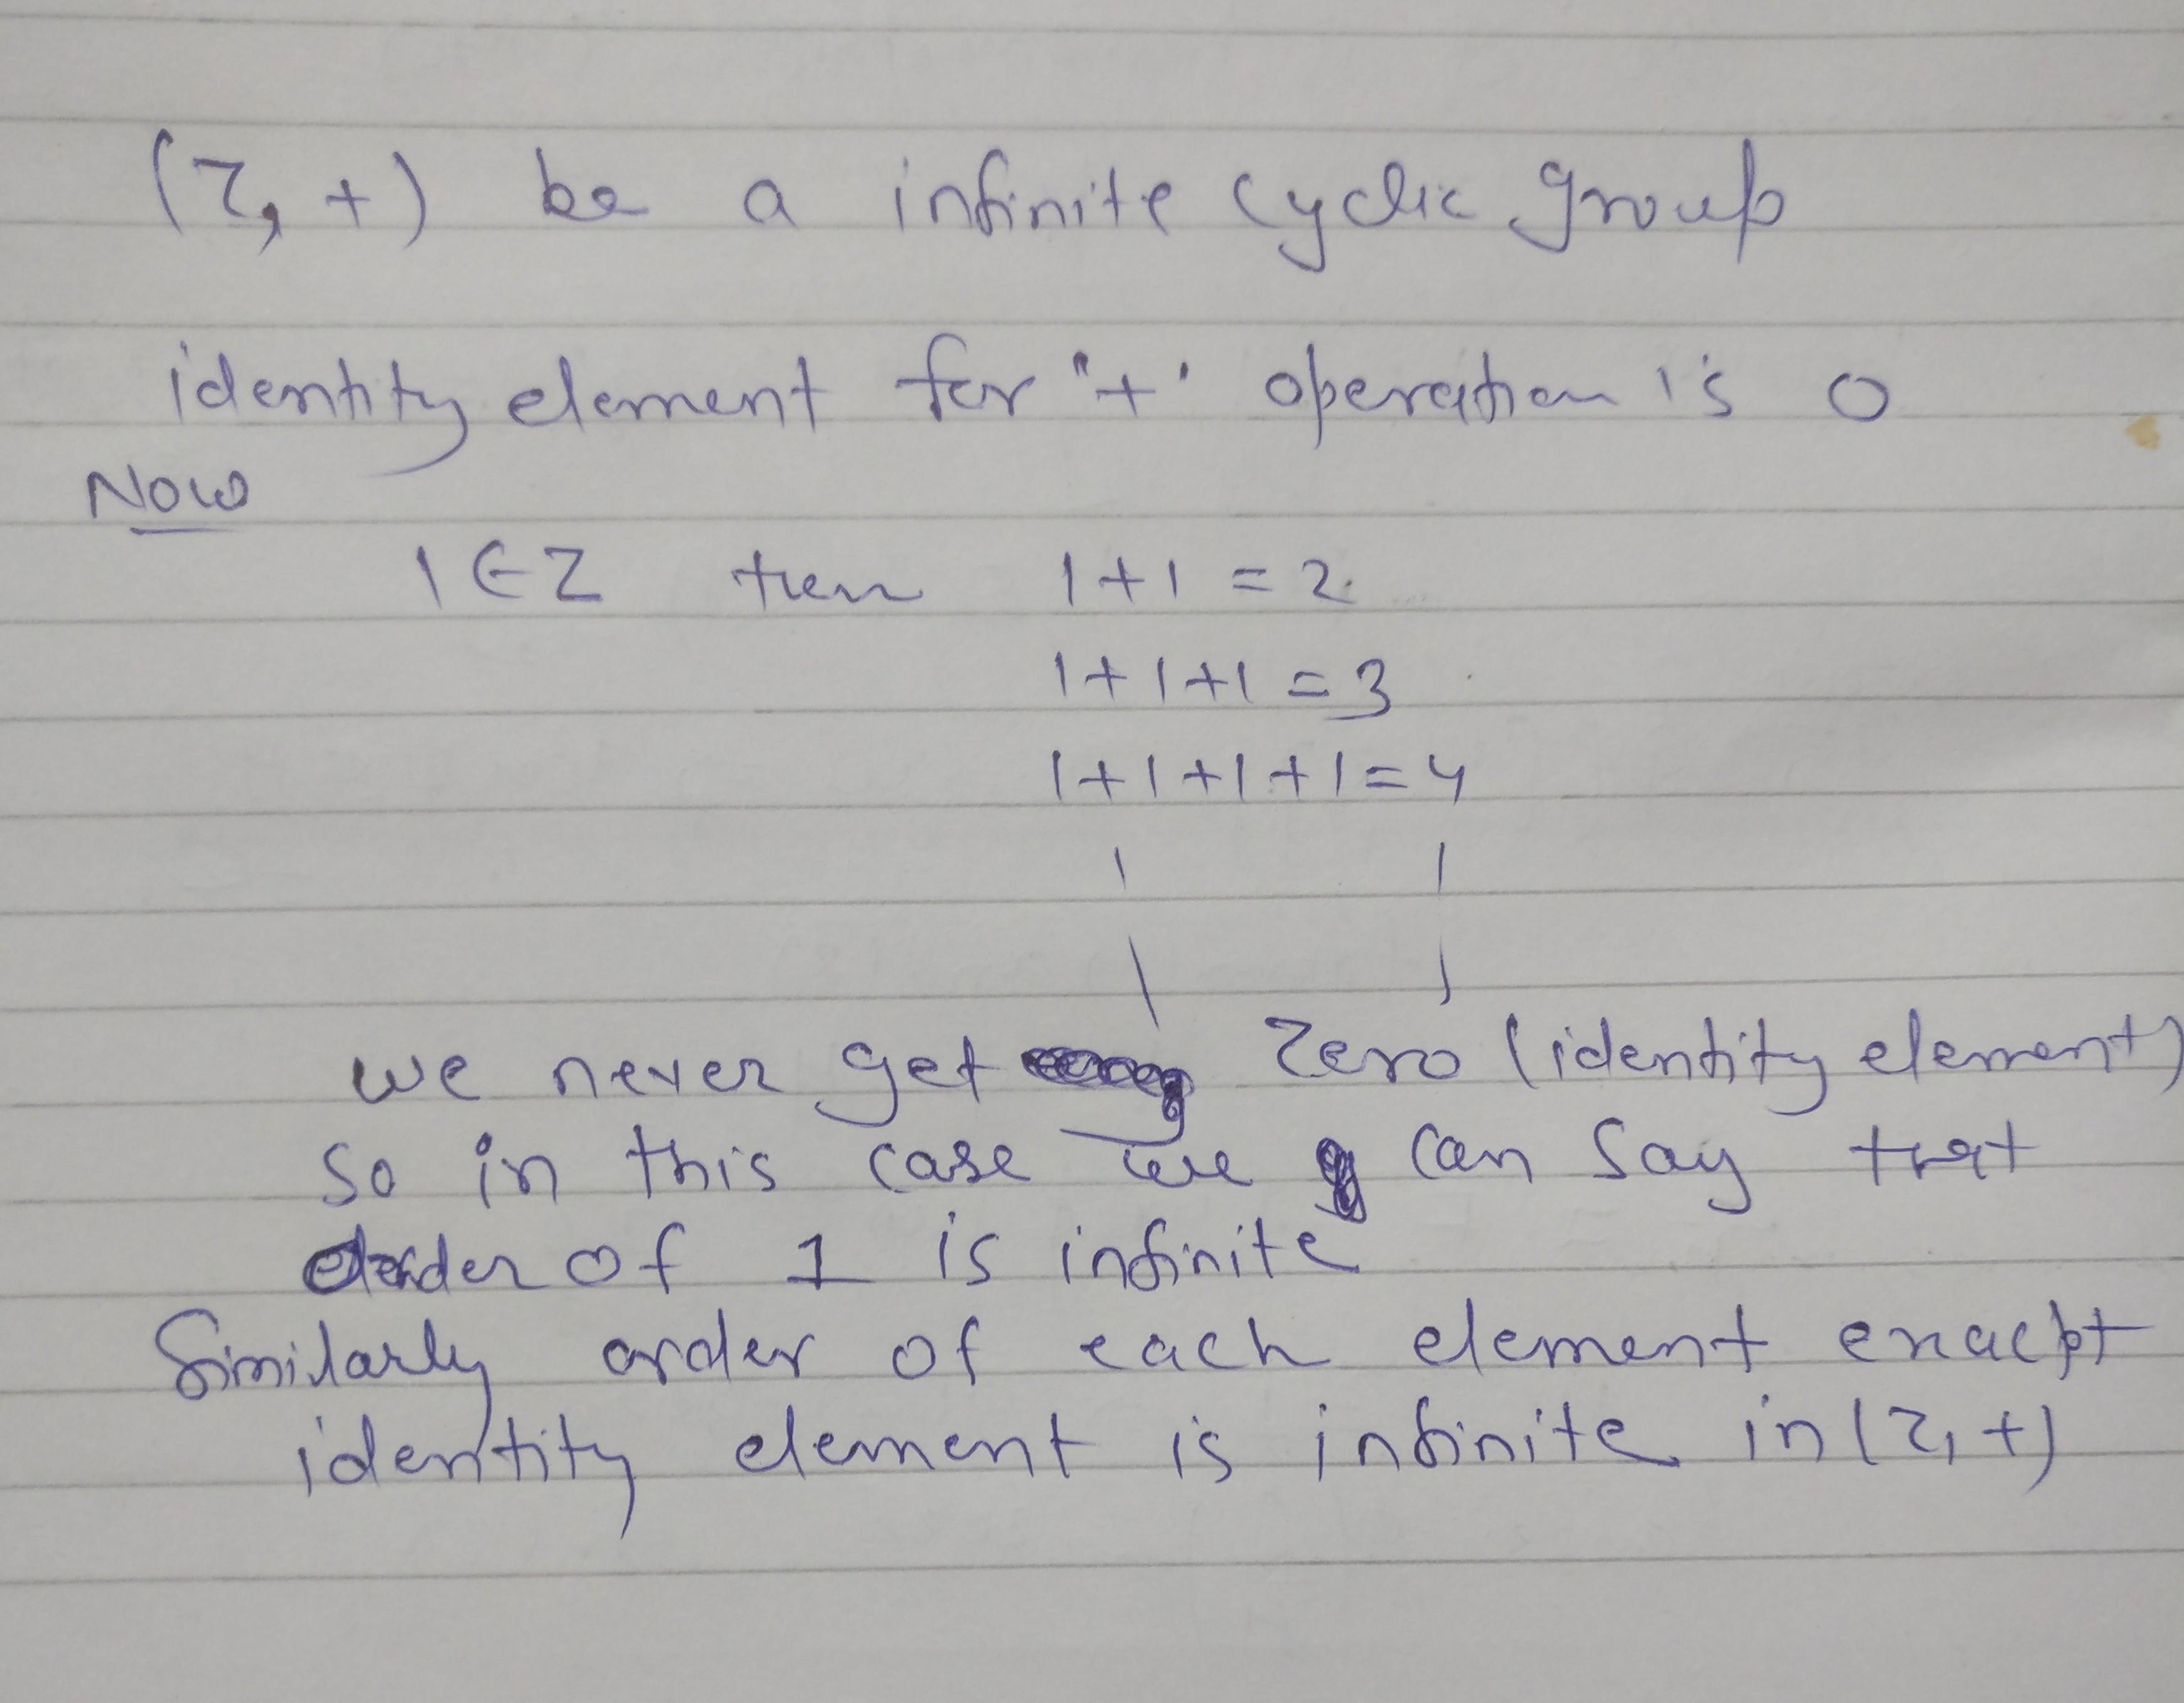 (Z, +) be a infinite cyclic group
identity element for '+' operation is 0
Now
1 ∈ Z then 1+1 = 2
1+1+1 = 3
1+1+1+1 = 4
we never get Zero (identity element)
so in this case we can say that
order of 1 is infinite
Similarly order of each element exacpt
identity element is infinite in (Z, +)